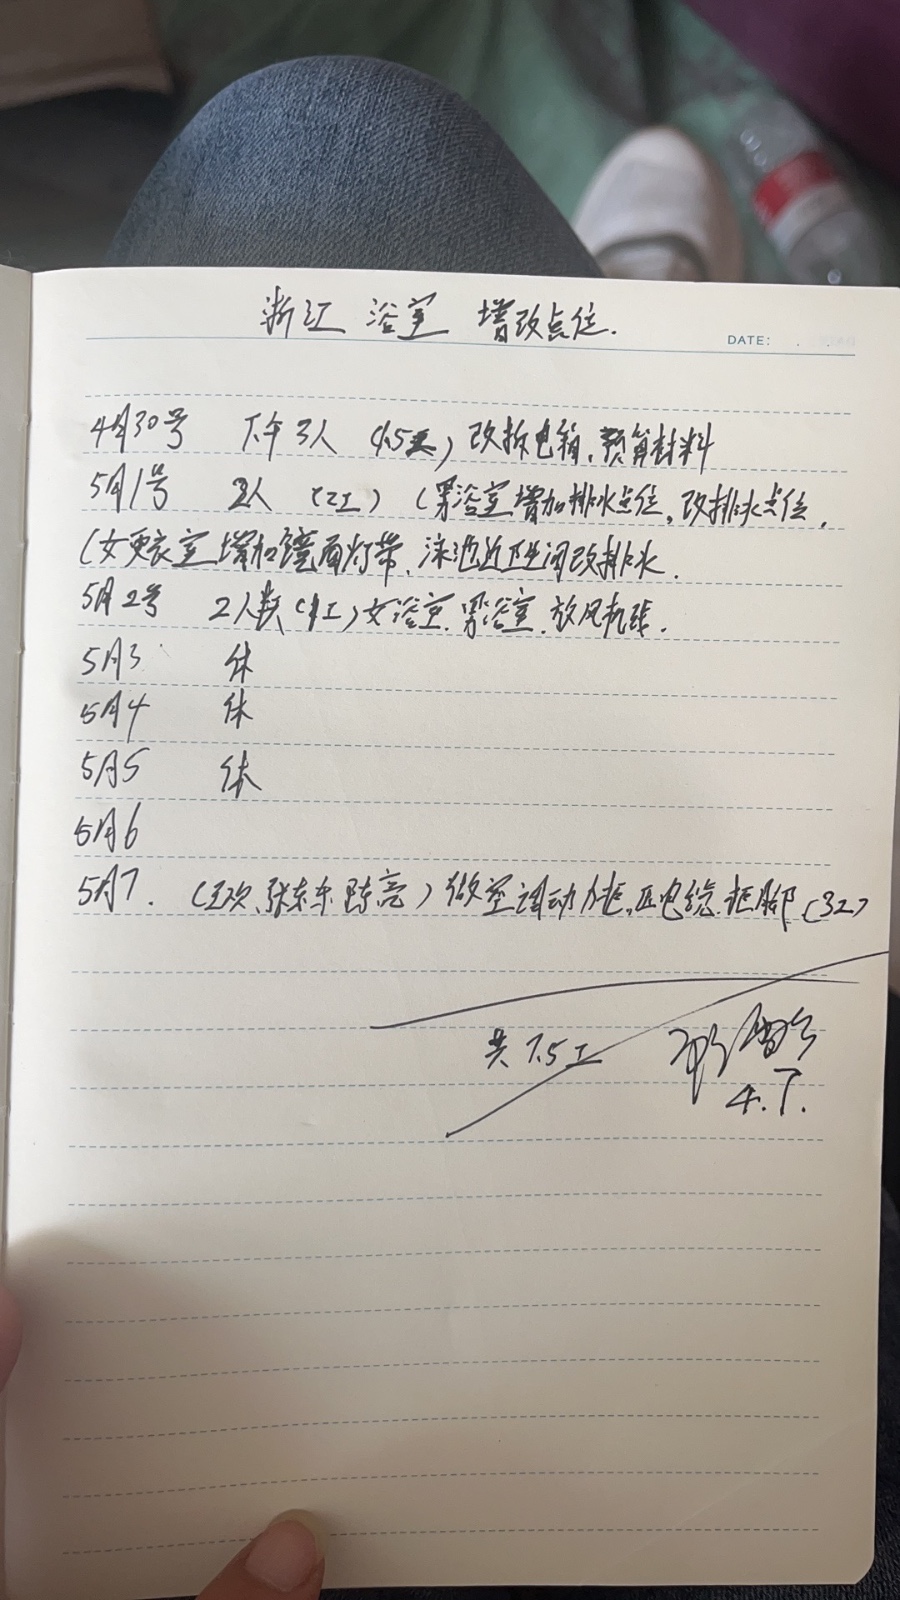 浙江 浴室 增改点位.
DATE:
4月30号 下午3人 (1.5工) 改拆电箱、预算材料
5月1号 2人 (2工) (男浴室增加排水点位, 改排水点位,
(女更衣室增加镜面灯带、泳池边卫生间改排水.
5月2号 2人 (1工) 女浴室、男浴室、放风机线.
5月3 休
5月4 休
5月5 休
5月6
5月7. (张东东 陈亮) 做空调动力柜, 电缆. 柜脚 (3工)
共7.5工